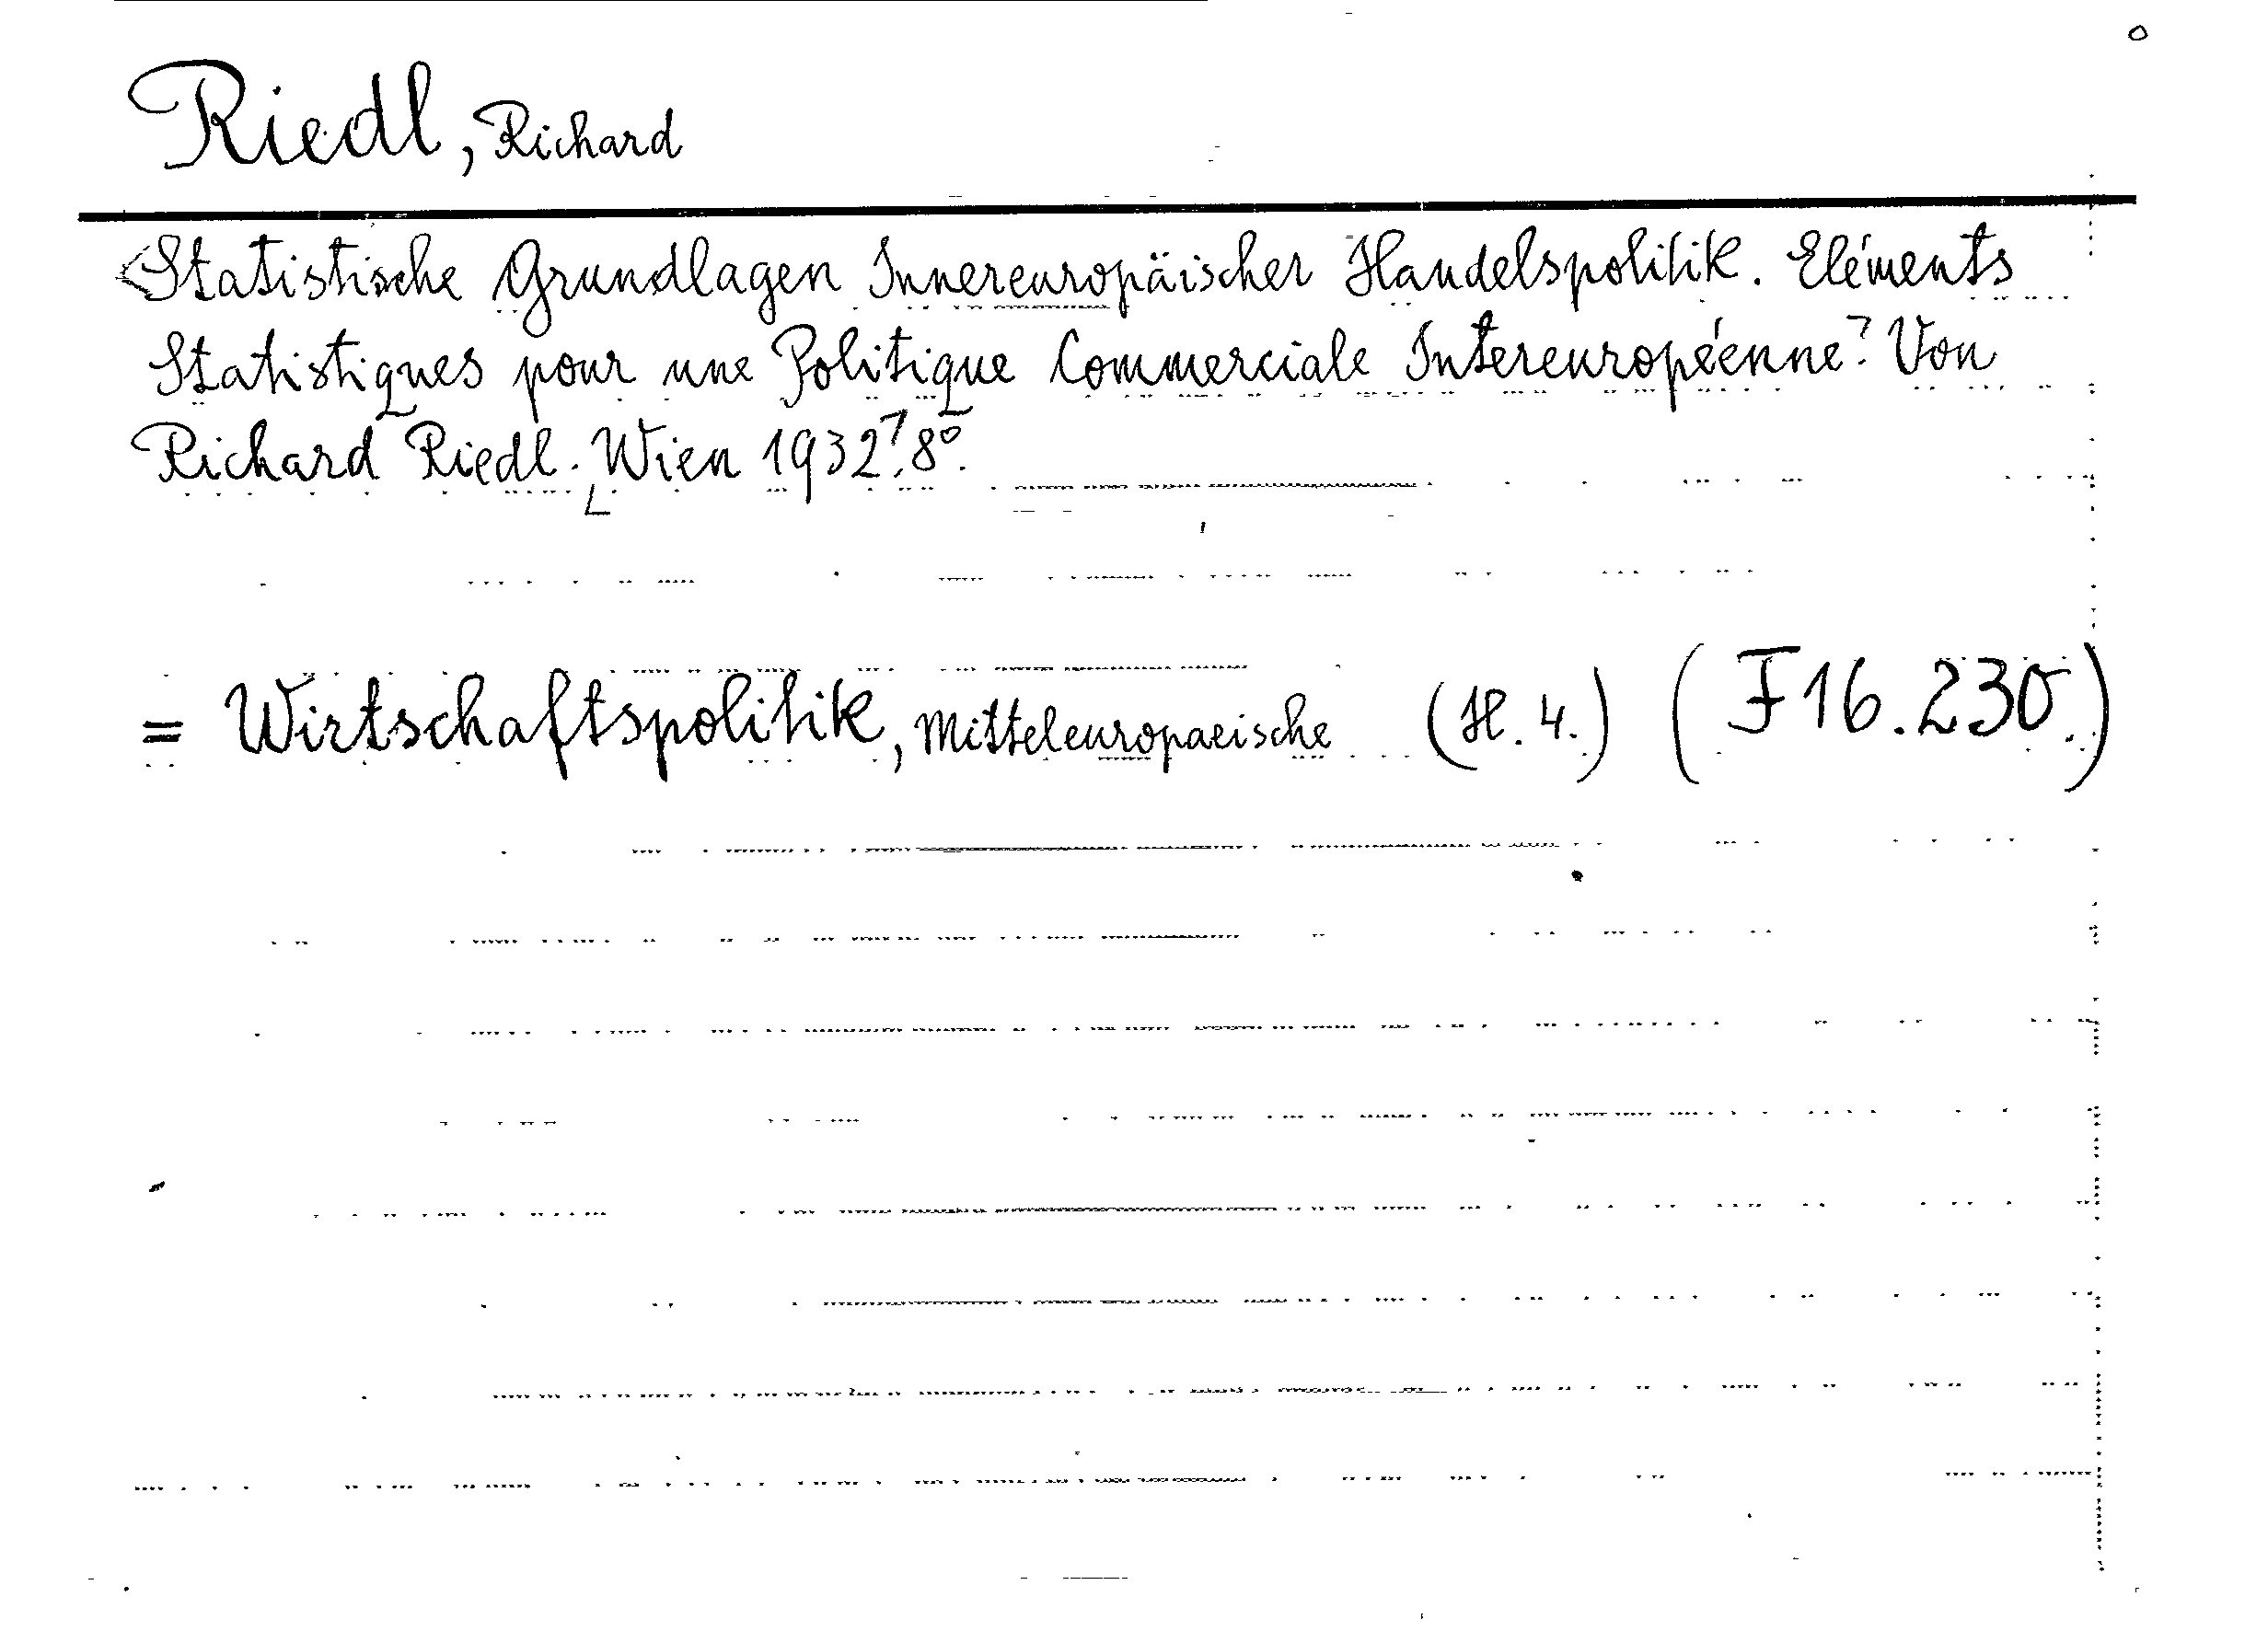 Riedl, Richard
Statistische Grundlagen Innereuropäischer Handelspolitik. Eléments
Statistiques pour une Politique Commerciale Intereuropéenne. Von
Richard Riedl. Wien 1932. 8°.
= Wirtschaftspolitik, Mitteleuropaeische (H. 4.) (F16.230.)